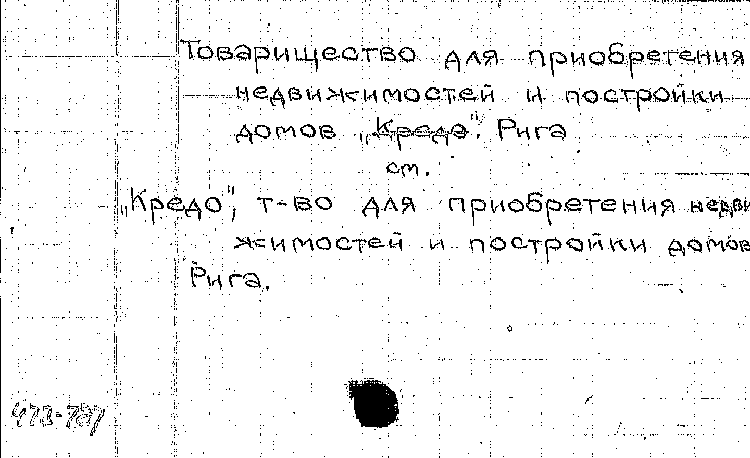 Товарищество для приобретения
недвижимостей и постройки
домов „Кредо". Рига
см.
„Кредо", т-во для приобретения недви
жимостей и постройки домов
Рига.
473-787